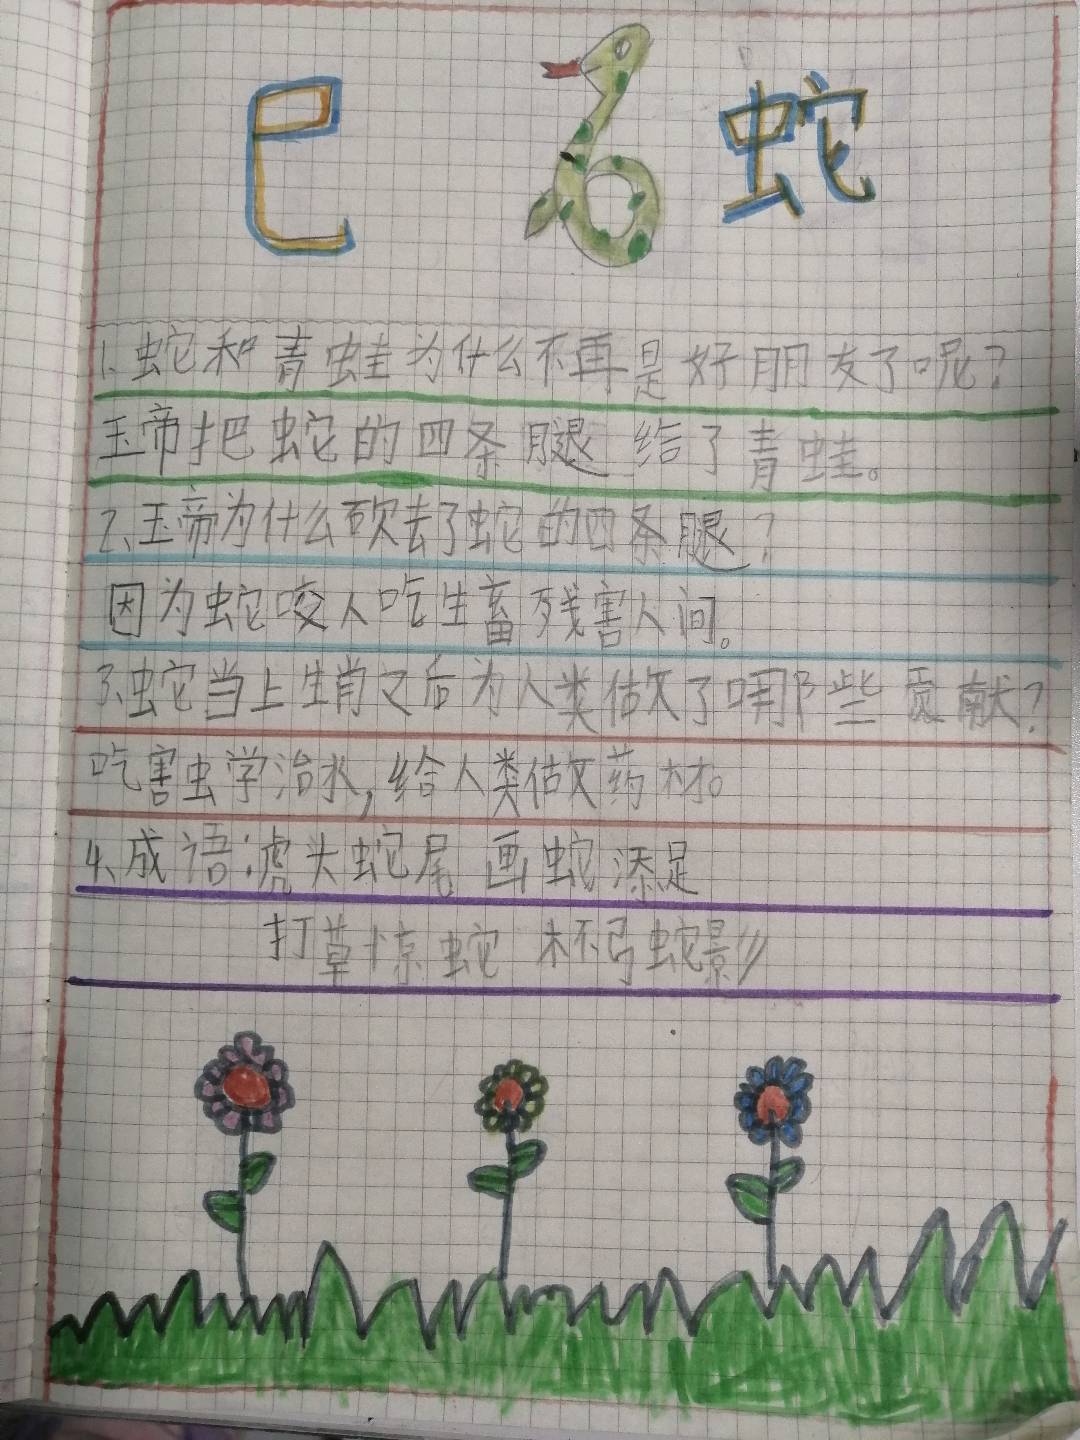 巳 蛇
1.蛇和青蛙为什么不再是好朋友了呢?
玉帝把蛇的四条腿给了青蛙。
2、玉帝为什么砍去了蛇的四条腿?
因为蛇咬人吃生畜残害人间。
3、蛇当上生肖之后为人类做了哪些贡献?
吃害虫学治水,给人类做药材。
4、成语:虎头蛇尾 画蛇添足
打草惊蛇 杯弓蛇影